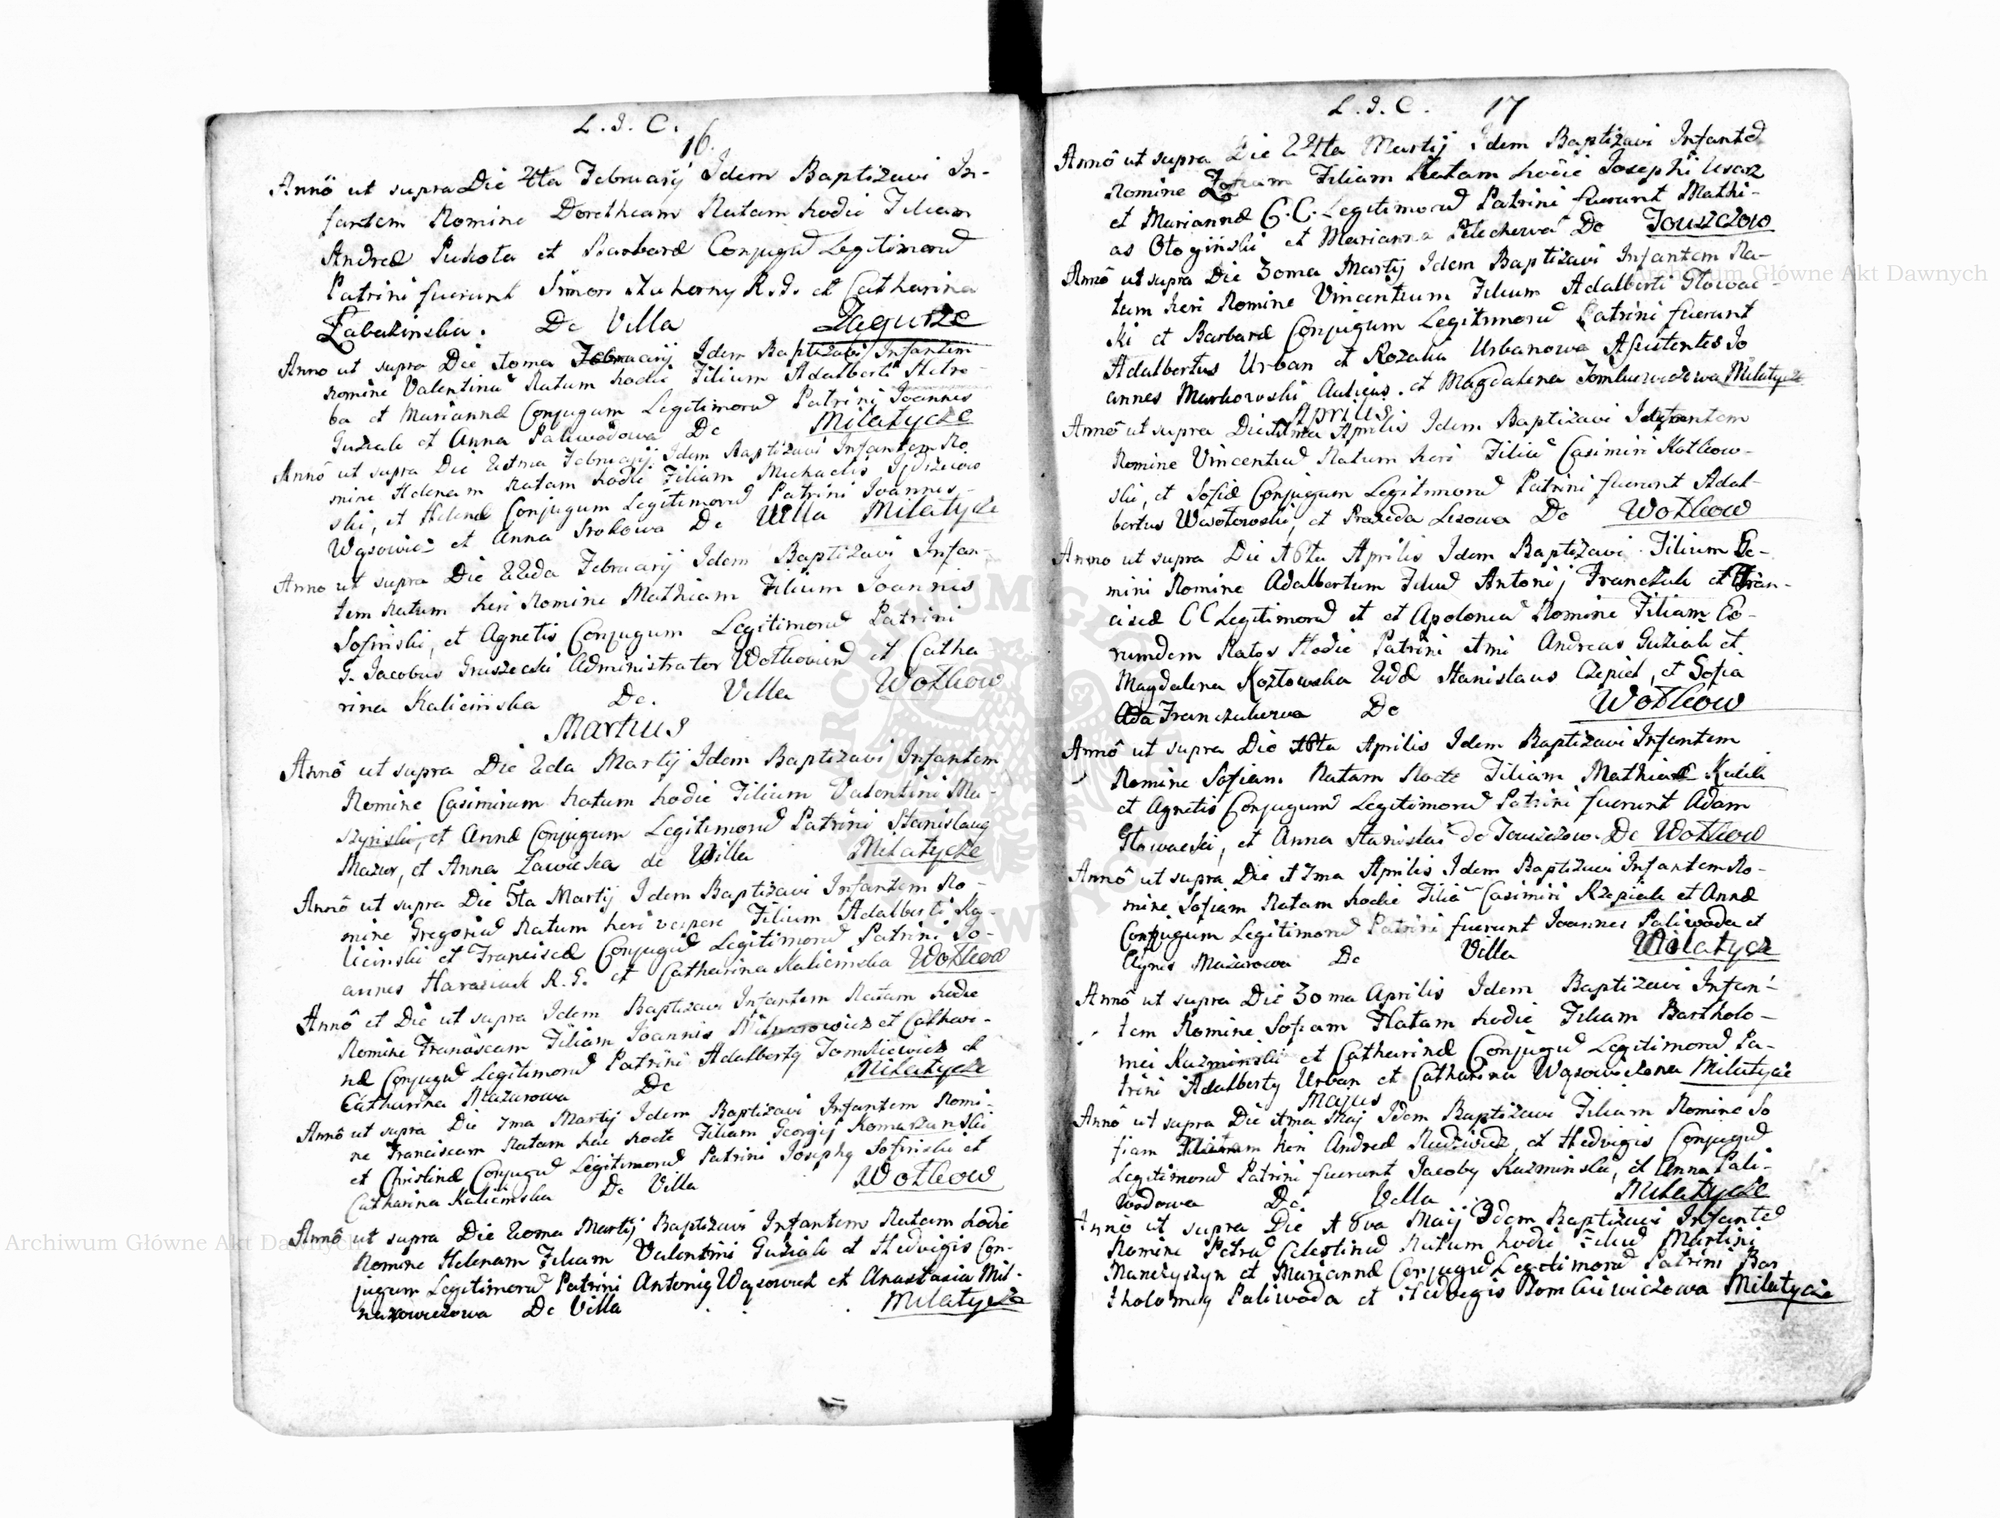 L. J. C.
16.
Annô ut supra Die 4ta Februarij Idem Baptizavi In-
fantem Nomine Dorotheam Natam hodie Filiam
Andreæ Pukota et Barbaræ Conjugũ Legitimorũ
Patrini fuerunt Simon Kuherny R. G. et Catharina
Zabakinska. De Villa Zagurze
Anno ut supra Die 10ma Februarij Idem Baptizavi Infantem
Nomine Valentinũ Natum hodie Filium Adalberti
ba et Mariannæ Conjugum Legitimorũ Patrini Joannes
Guziak et Anna Paliwodowa De Milatycze
Annô ut supra Die Februarij Idem Baptizavi Infantem No
mine Helenam Natam hodie Filiam Michaelis
ski, et Helenæ Conjugum Legitimorũ Patrini Joannes
Wąsowicz et Anna Srokowa De Villa Milatycze
Anno ut supra Die 22da Februarij Idem Baptizavi Infan-
tem Natum heri Nomine Mathiam Filium Joannis
Sofinski, et Agnetis Conjugum Legitimorũ Patrini
G. Jacobus Gruszecki Administrator Wołkoviens et Catha
rina Kalicińska De. Villa Wołkow
Martius
Annô ut supra Die 2da Martij Idem Baptizavi Infantem
Nomine Casimirum Natum hodie Filium Valentini Ma-
szyński, et Annæ Conjugum Legitimorũ Patrini Stanislaus
Mazur, et Anna Zawicka de Villa Milatycze
Annô ut supra Die 5ta Martij Idem Baptizavi Infantem No-
mine Gregoriũ Natum heri vespere Filium Adalberti Ka-
licinski et Franciscæ Conjugũ Legitimorũ Patrini Jo-
annes Harasiuk R. G. et Catharina Kalicinska Wołkow
Annô et Die ut supra Idem Baptizavi Infantem Natam hodie
Nomine Franciscam Filiam Joannis et Cathari-
næ Conjugũ Legitimorũ Patrini Adalbertq Tomkiewicz et
Catharina Mazurowa De Milatycze
Annô ut supra Die 7ma Martij Idem Baptizavi Infantem Nomi-
ne Franciscam Natam hac nocte Filiam Georgij Komarzanski
et Christinæ Conjugũ Legitimorũ Patrini Josephq Sofinski et
Catharina Kalicinska De Villa Wołkow
Annô ut supra Die 20ma Martij Baptizavi Infantem Natam hodie
Nomine Helenam Filiam Valentini Guziak et Hedvigis Con-
jugum Legitimorũ Patrini Antoniq Wąsowicz et Anastasia Mil-
narowiczowa De Villa Milatycze
L. J. C. 17
Annô ut supra Die 24ta Martij Idem Baptizavi Infantẽ
Nomine Zofiam Filiam Natam hodie Josephi Usarz
et Mariannæ C. C. Legitimorũ Patrini fuerunt Mathi-
as Otogiński et Marianna Petechowa De Touszczow
Annô ut supra Die 30ma Martij Idem Baptizavi Infantem Na-
tum heri Nomine Vincentium Filium Adalberti Głowac-
ki et Barbaræ Conjugum Legitimorũ Patrini fuerunt
Adalbertus Urban et Rozalia Urbanowa Assistentes Jo
annes Markowski Aulicus. et Magdalena Tomkiewiczowa Milatycze
Aprilis
Annô ut supra Die Aprilis Idem Baptizavi Infantem
Nomine Vincentiũ Natum heri Filiũ Casimiri Kotkow-
ski, et Sofiæ Conjugum Legitimorũ Patrini fuerunt Adal-
bertus Wasołowski, et Praxeda Lisowa De Wołkow
Anno ut supra Die 16ta Aprilis Idem Baptizavi Filium Ge-
mini Nomine Adalbertum Filiũ Antonij Franczuk et Fran-
ciscæ CC Legitimorũ et et Apoloniã Nomine Filiam Eo-
rumdem Natos Hodie Patrini 1mi Andreas Guziak et
Magdalena Kozłowska 2dæ Stanislaus Czepiel, et Sofia
Franczukowa De Wołkow
Annô ut supra Die 16ta Aprilis Idem Baptizavi Infantem
Nomine Sofiam Natam Nocte Filiam Mathiæ
et Agnetis Conjugum Legitimorũ Patrini fuerunt Adam
Głowacki, et Anna Stanislai de Touszczow. De Wołkow
Annô ut supra Die 17ma Aprilis Idem Baptizavi Infantem No-
mine Sofiam Natam hodie Filiã Casimiri Rzepiak et Annæ
Conjugum Legitimorũ Patrini fuerunt Joannes Paliwoda et
Agnes Mazurowa De Villa Milatycz
Annô ut supra Die 30ma Aprilis Idem Baptizavi Infan-
tem Nomine Sofiam Natam hodie Filiam Bartholo-
mei Kuzminski et Catharinæ Conjugũ Legitimorũ Pa-
trini Adalbertq Urban et Catharina Wąsowiczowa Milatycze
Majus
Annô ut supra Die 1ma Maij Idem Baptizavi Filiam Nomine So
fiam Natam heri Andreæ et Hedvigis Conjugũ
Legitimorũ Patrini fuerunt Jacobq Kuzminski, et Anna Pali-
wodowa De Villa Milatycze
Anno ut supra Die 18va Maij Idem Baptizavi Infantẽ
Nomine Petrũ Celestinũ Natum hodie Filiũ Martini
Manczyszyn et Mariannæ Conjugũ Legitimorũ Patrini Bar
tholomeq Paliwoda et Hedvigis Tomkiewiczowa Milatycze
Archiwum Główne Akt Dawnych
Archiwum Główne Akt Dawnych
ARCHIWUM GŁÓWNE AKT DAWNYCH